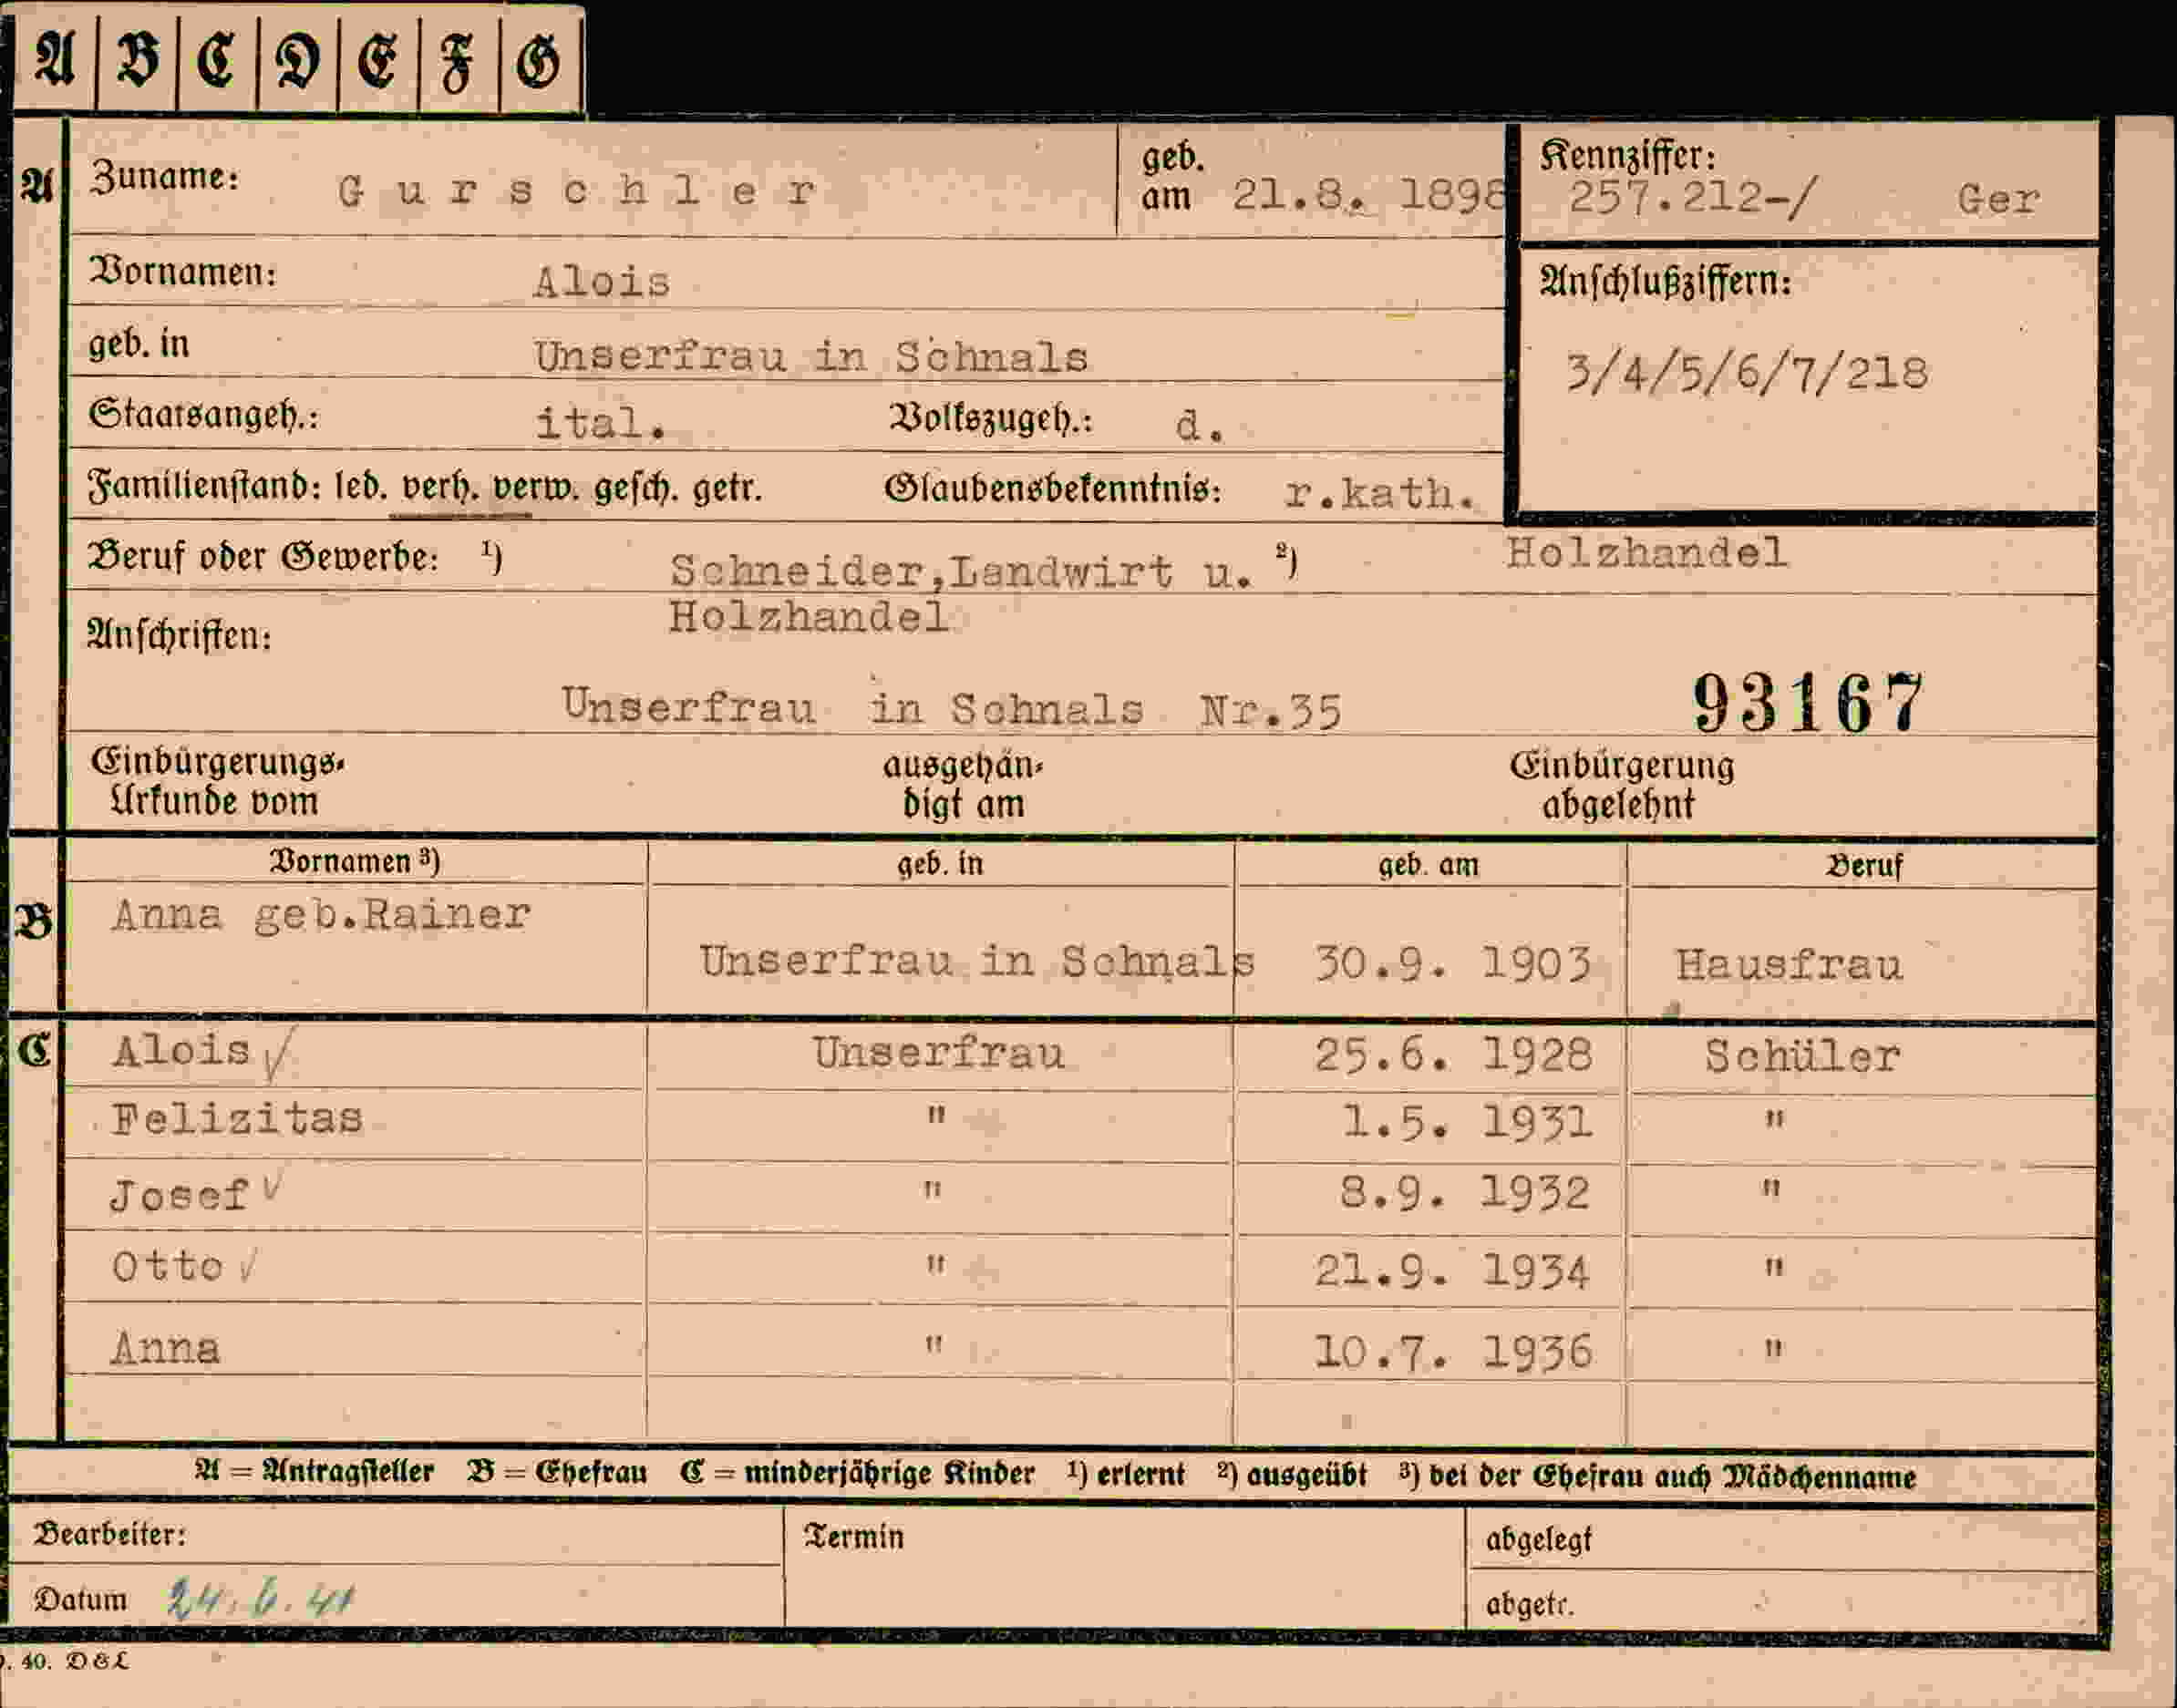 A B C D E F G
A Zuname: Gurschler geb. am 21.8. 1898 Kennziffer: 257.212-/ Ger
Vornamen: Alois Anschlußziffern:
geb. in Unserfrau in Schnals 3/4/5/6/7/218
Staatsangeh.: ital. Volkszugeh.: d.
Familienstand: led. verh. verw. gesch. getr. Glaubensbekenntnis: r.kath.
Beruf oder Gewerbe: ¹) Schneider,Landwirt u. ²) Holzhandel
Holzhandel
Anschriften:
Unserfrau in Schnals Nr.35 93167
Einbürgerungs- ausgehän- Einbürgerung
Urkunde vom digt am abgelehnt
Vornamen ³) geb. in geb. am Beruf
B Anna geb.Rainer
Unserfrau in Schnals 30.9. 1903 Hausfrau
C Alois Unserfrau 25.6. 1928 Schüler
Felizitas " 1.5. 1931 "
Josef " 8.9. 1932 "
Otto " 21.9. 1934 "
Anna " 10.7. 1936 "
A = Antragsteller B = Ehefrau C = minderjährige Kinder ¹) erlernt ²) ausgeübt ³) bei der Ehefrau auch Mädchenname
Bearbeiter: Termin abgelegt
Datum 24.6.41 abgetr.
. 40. D&L